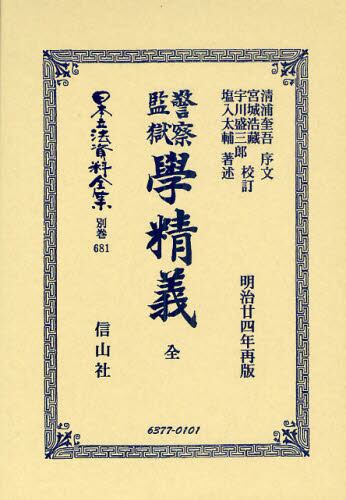 清浦奎吾 序文
宮城浩藏
宇川盛三郎 校訂
塩入太輔 著述
警察
監獄
學精義
全
明治廿四年再版
日本立法資料全集
別巻
681
信山社
6377-0101